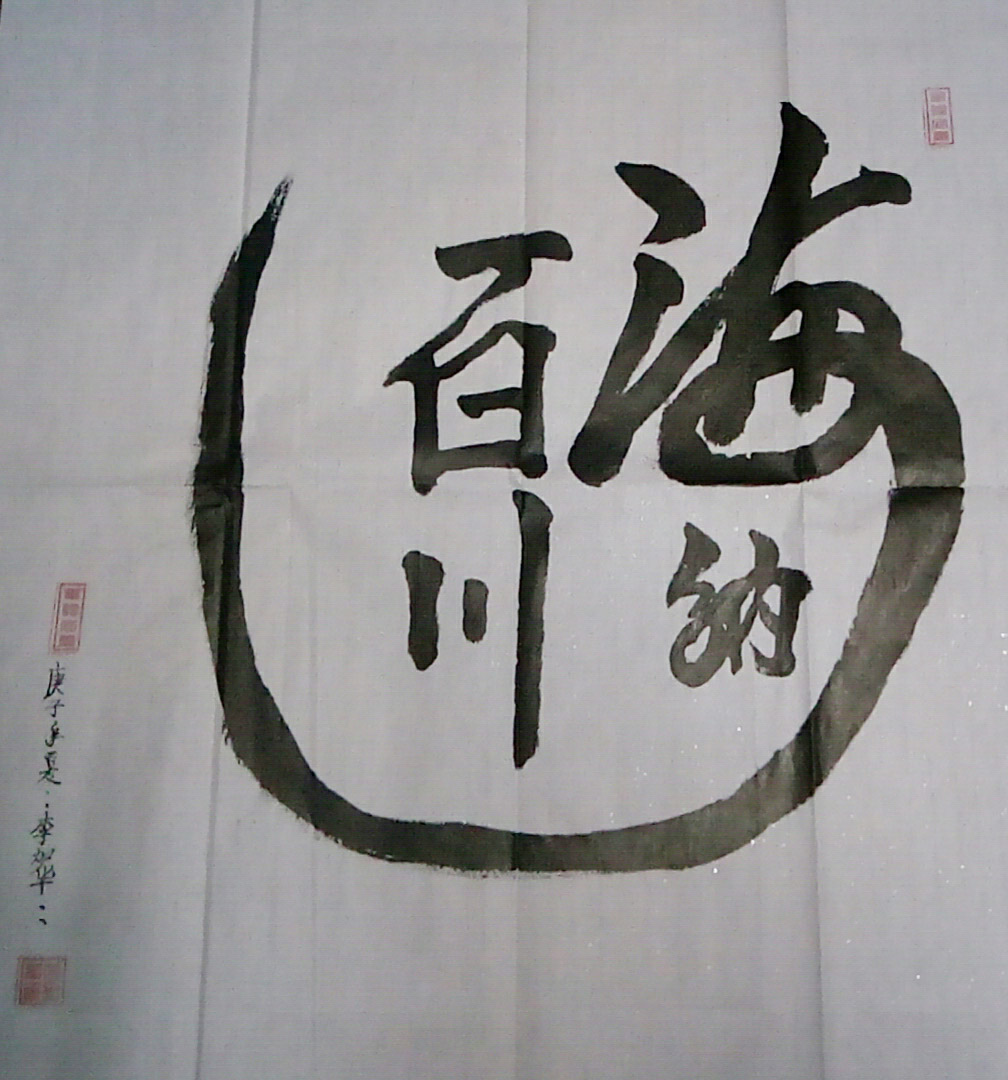 海纳
百川
庚子年夏:李松华: